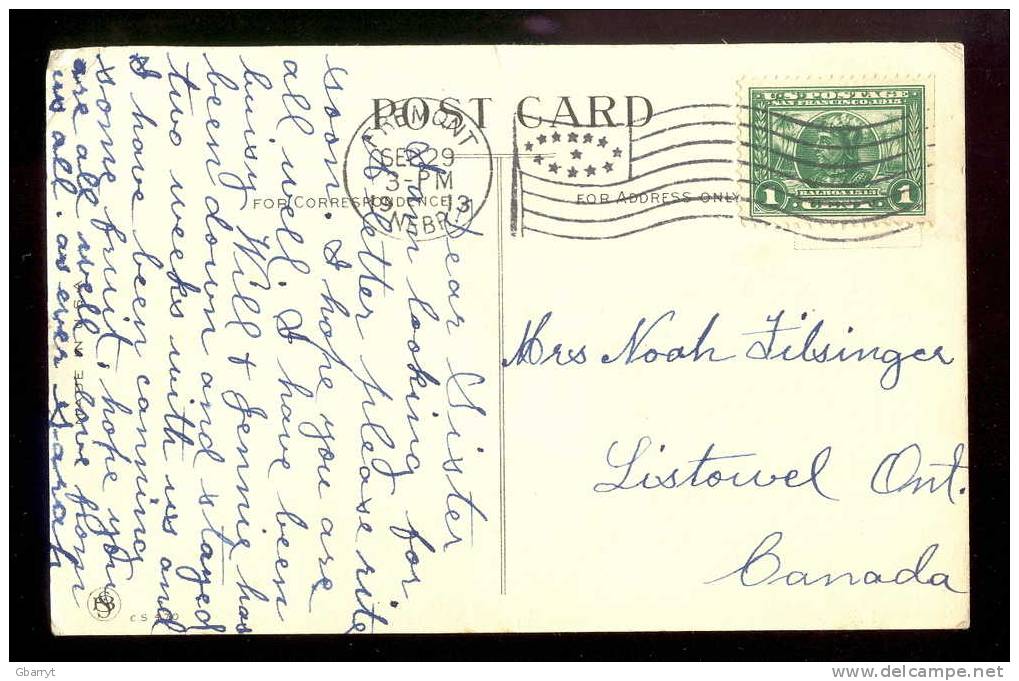 POST CARD
FOR CORRESPONDENCE
FOR ADDRESS ONLY
FREMONT
SEP 29
3-PM
1913
NEBR.
U.S. POSTAGE
SAN FRANCISCO 1915
BALBOA 1513
1 CENT 1
Mrs Noah Filsinger
Listowel Ont.
Canada
Dear Sister
I am looking for
a letter please rite
soon. I hope you are
all well. I have been
buisy Will & Jennie has
been down and stayed
two weeks with us and
I have been canning
some fruit, hope you
are all well, love from
us all. as ever Sarah
MADE IN U.S.A.
C.S.
Gbarryt
http://www.delcampe.net